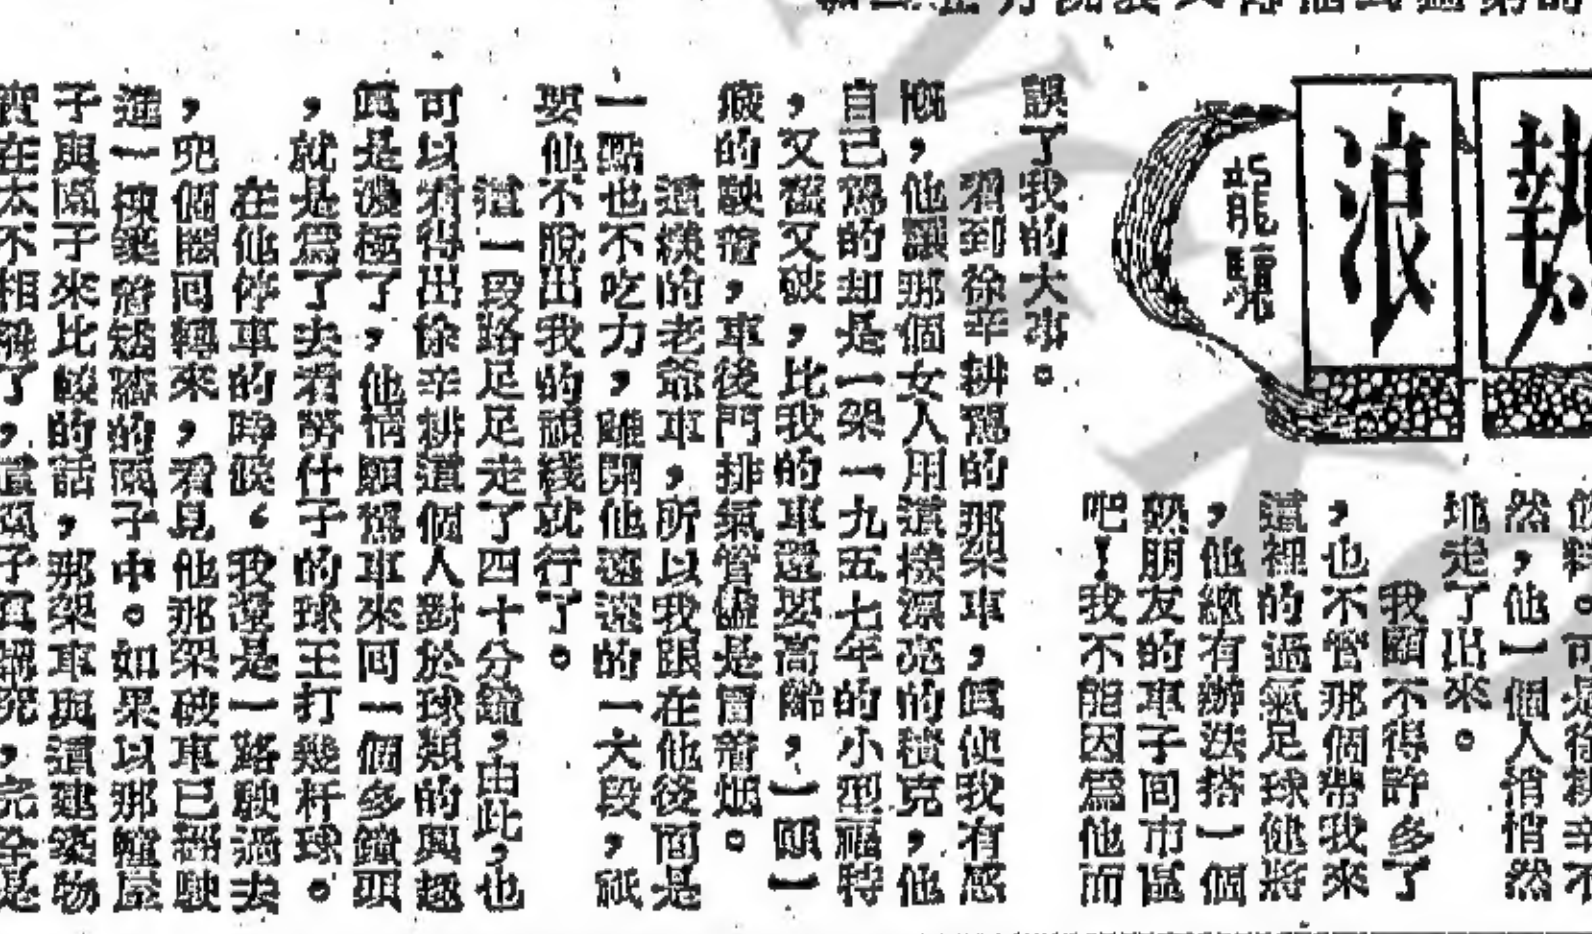 熱浪
龍驤
然，他一個人悄悄然
地走了出來。
我顧不得許多了
，也不管那個帶我來
這裡的過氣足球健將
，他總有辦法搭一個
熟朋友的車子回市區
吧！我不能因爲他而
誤了我的大事。
看到徐辛耕駕的那架車，眞使我有感
慨，他讓那個女人用這樣漂亮的積克，他
自己駕的却是一架一九五七年的小型福特
，又舊又破，比我的車還要高齡，一頭一
癈的駛着，車後門排氣管儘是冒着烟。
這樣的老爺車，所以我跟在他後面是
一點也不吃力，離開他遠遠的一大段，祇
要他不脫出我的視綫就行了。
這一段路足足走了四十分鐘，由此，也
可以看得出徐辛耕這個人對於球類的興趣
眞是濃極了，他情願駕車來回一個多鐘頭
，就是爲了去看勞什子的球王打幾杆球。
在他停車的時候，我還是一路駛過去
，兜個圈回轉來，看見他那架破車已經駛
進一棟築着矮牆的園子中。如果以那幢屋
子與園子來比較的話，那架車與這建築物
實在太不相稱了，